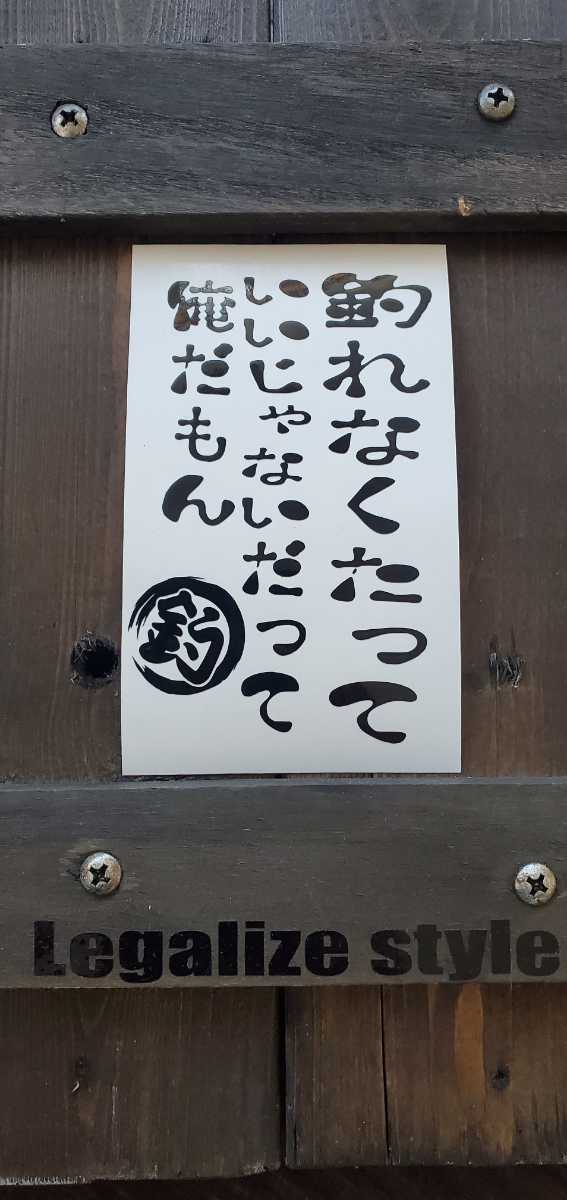 釣れなくたって
いいじゃないだって
俺だもん
釣
Legalize style